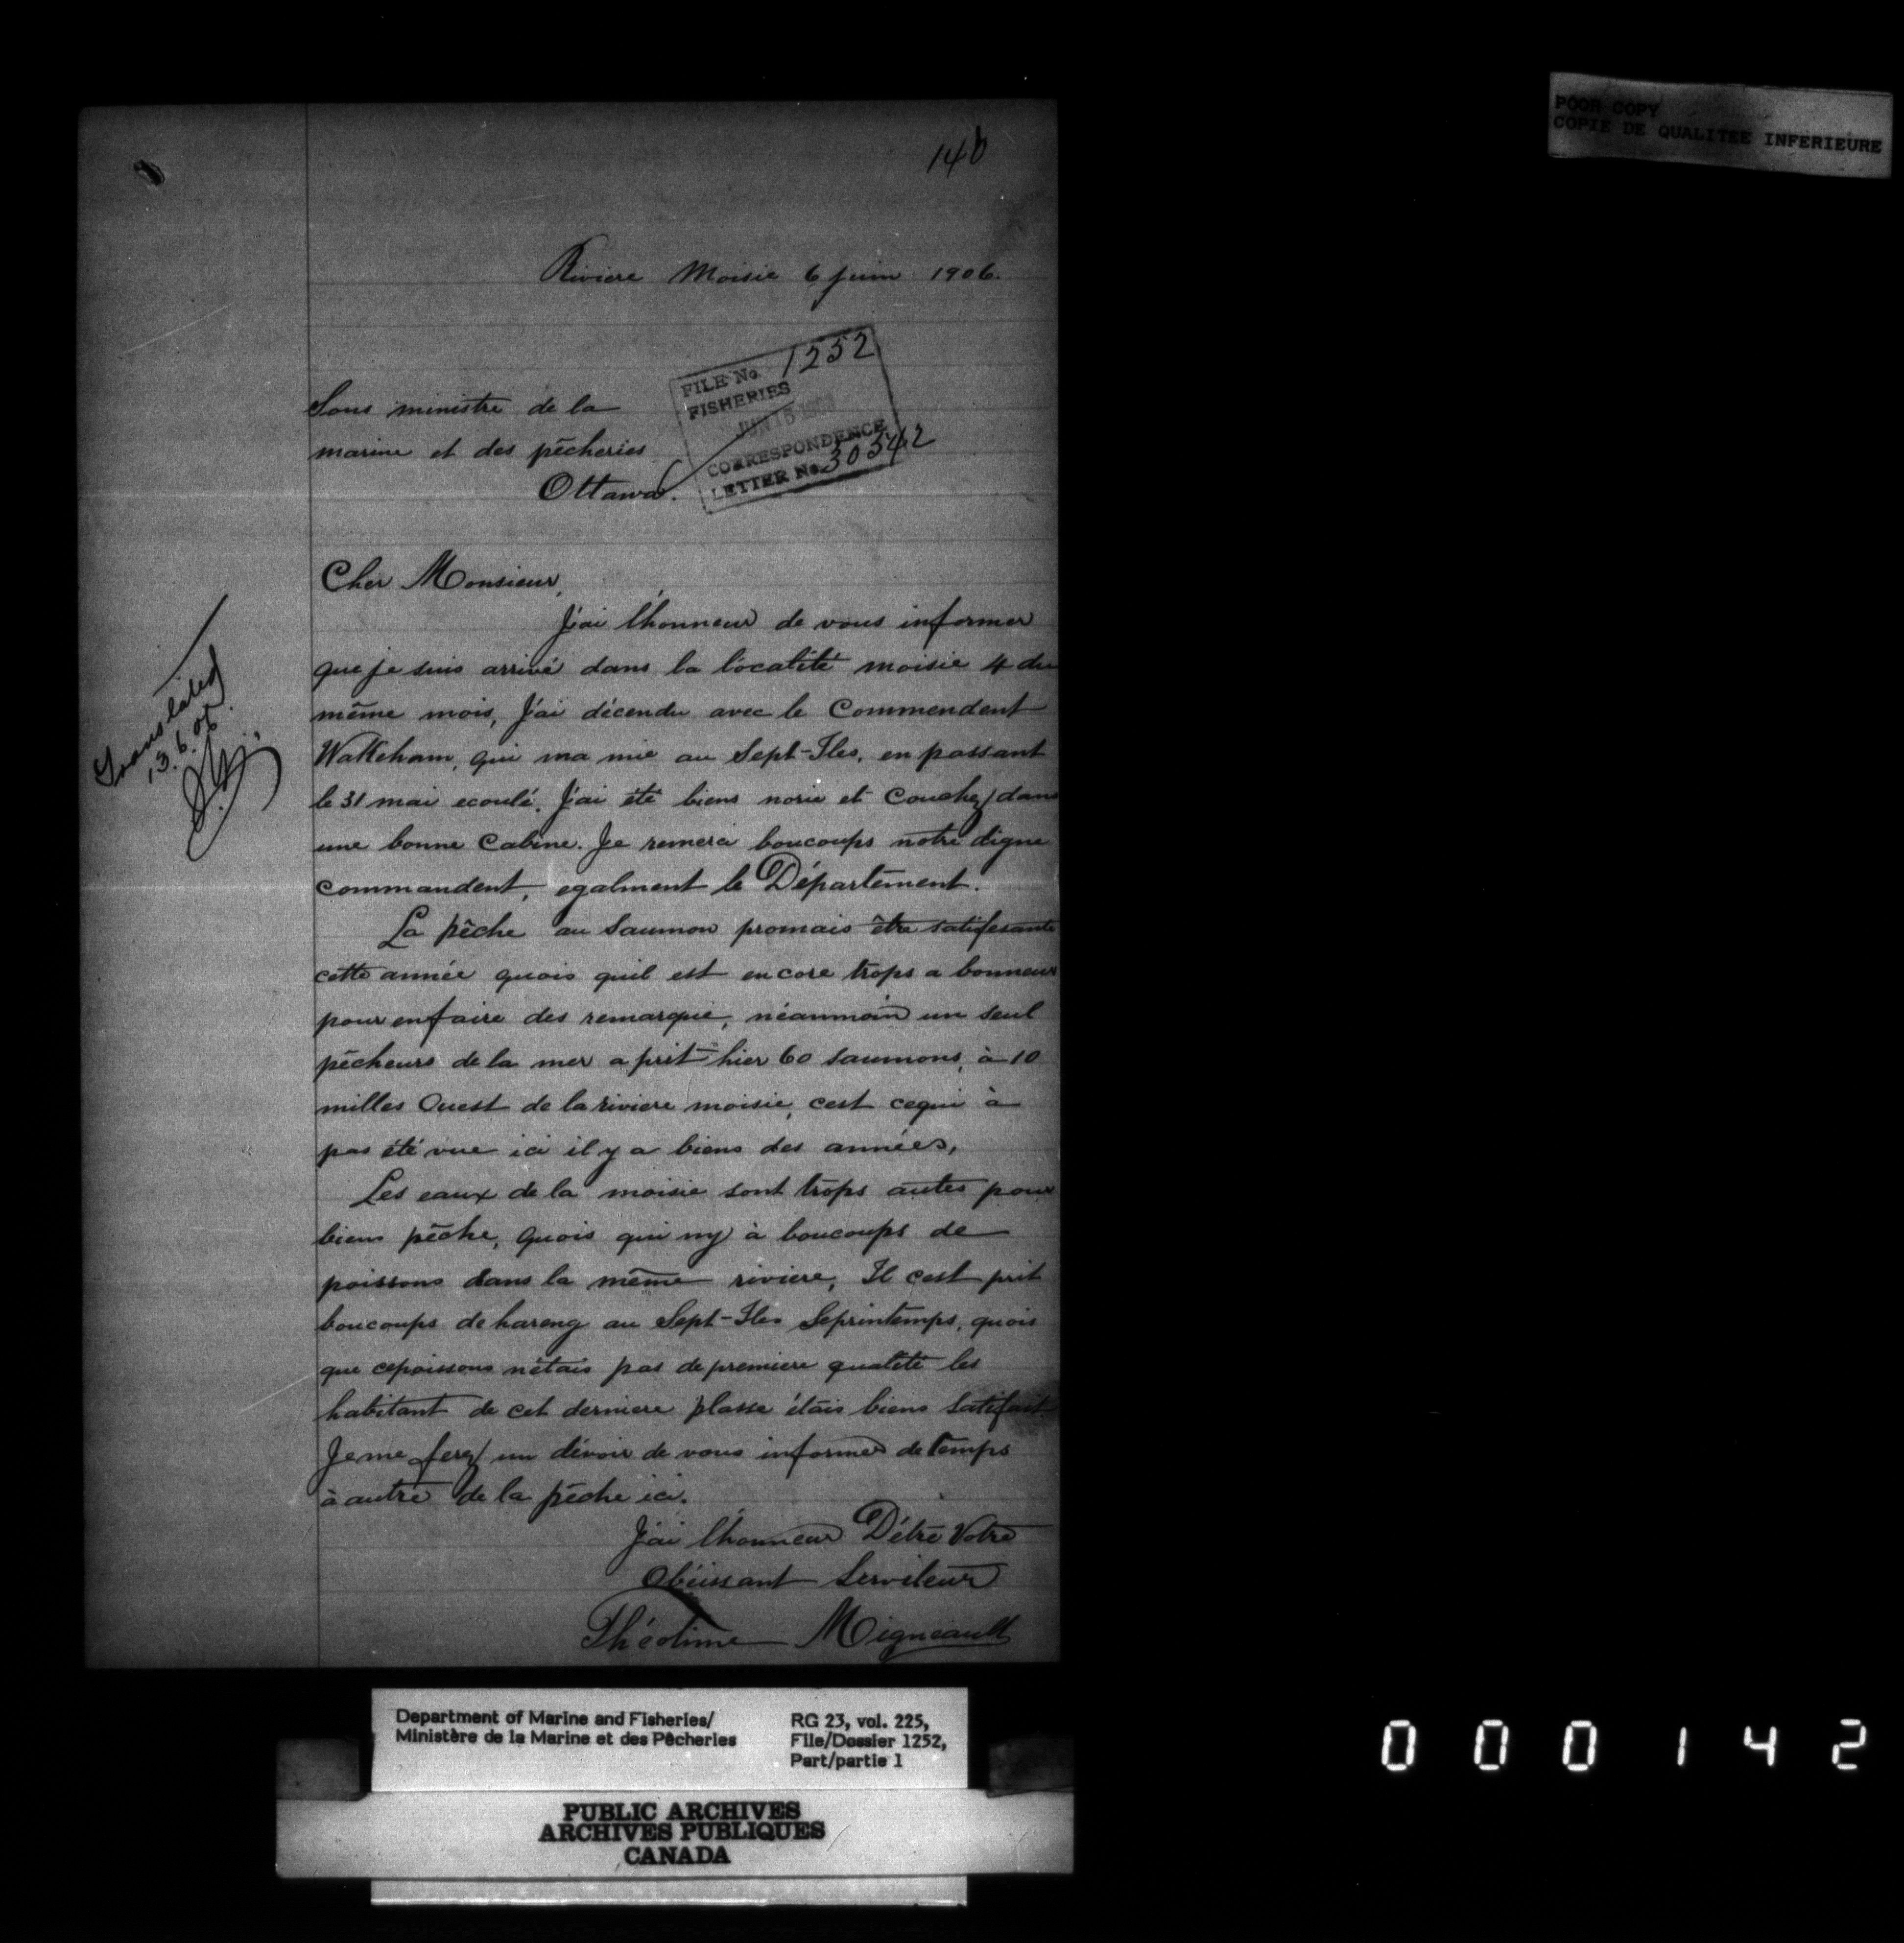 POOR COPY
COPIE DE QUALITEE INFERIEURE
140
Riviere Moisie 6 juin 1906.
FILE No. 1252
FISHERIES
JUN 15
CORRESPONDENCE
LETTER No. 30542
Sous ministre de la
marine et des pêcheries
Ottawa.
Cher Monsieur,
J'ai l'honneur de vous informer
que je suis arrivé dans la localité moisie 4 du
même mois, J'ai décendu avec le Commendent
Wakeham, qui ma mie au Sept-Iles, en passant
le 31 mai ecoulé. J'ai été biens norie et Couchez dans
une bonne Cabine. Je remerci boucoups notre digne
commandent, egalment le Département.
La pêche au Saumon promais être satifesante
cette année quois quil est encore trops a bonneur
pour enfaire des remarque, néanmoin un seul
pêcheurs de la mer a prit hier 60 saumons, à 10
milles Ouest de la riviere moisie, cest cequi à
pas été vue ici il y a biens des années,
Les eaux de la moisie sont trops autes pour
biens pêche, quois qui ny à boucoups de
poissons dans la même riviere, Il cest prit
boucoups de hareng au Sept-Iles Seprintemps, quois
que cepoissons nétais pas de premiere qualité les
habitant de cet derniere plasse étais biens Satifait
Je me ferez un dévoir de vous informer de temps
à autre de la pêche ici.
J'ai l'honneur D'être Votre
Obéissant Serviteur
Théotime Migneault
Translated
13.6.06
Department of Marine and Fisheries/
Ministère de la Marine et des Pêcheries
RG 23, vol. 225,
File/Dossier 1252,
Part/partie 1
PUBLIC ARCHIVES
ARCHIVES PUBLIQUES
CANADA
000142